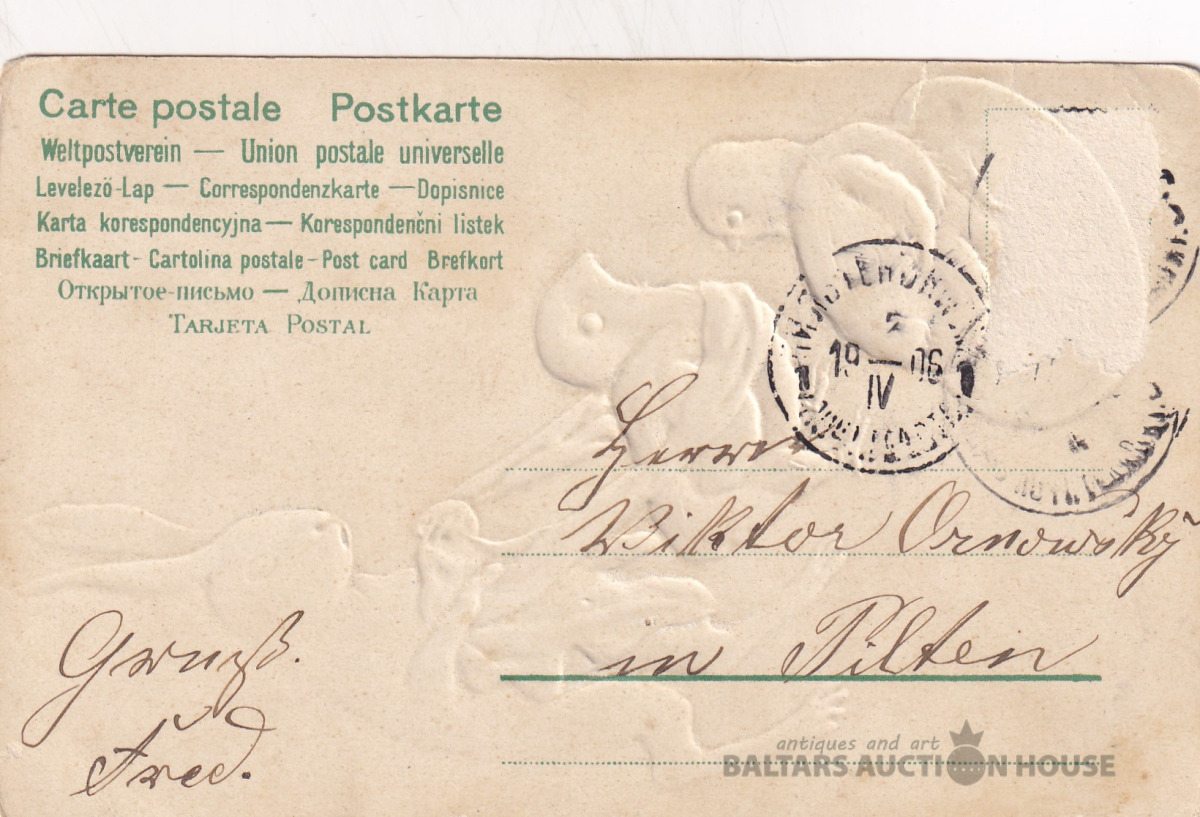 Carte postale Postkarte
Weltpostverein — Union postale universelle
Levelező-Lap — Correspondenzkarte — Dopisnice
Karta korespondencyjna — Korespondenčni listek
Briefkaart - Cartolina postale - Post card Brefkort
Открытое-письмо — Дописна Карта
TARJETA POSTAL
2
19 — 06
IV
1
1
4
Herrn
Viktor Ornowsky
in Pilten
Gruß.
Fred.
antiques and art
BALTARS AUCTION HOUSE